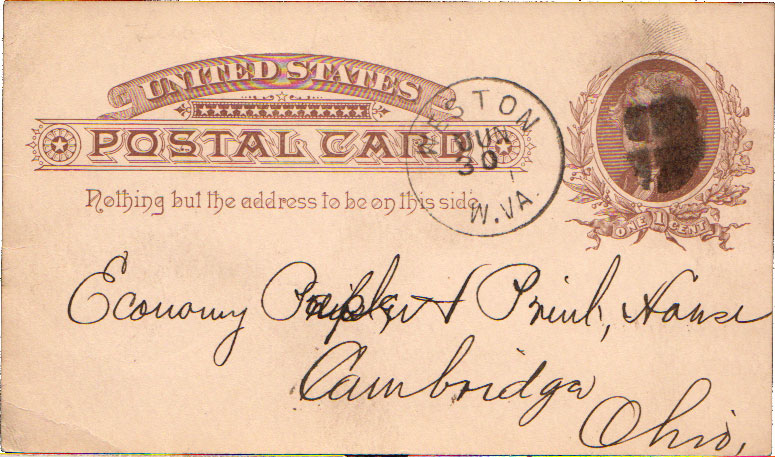 UNITED STATES
POSTAL CARD
Nothing but the address to be on this side.
WESTON
JUN
30
W.VA.
ONE 1 CENT
Economy Paper & Print, House
Cambridge
Ohio,